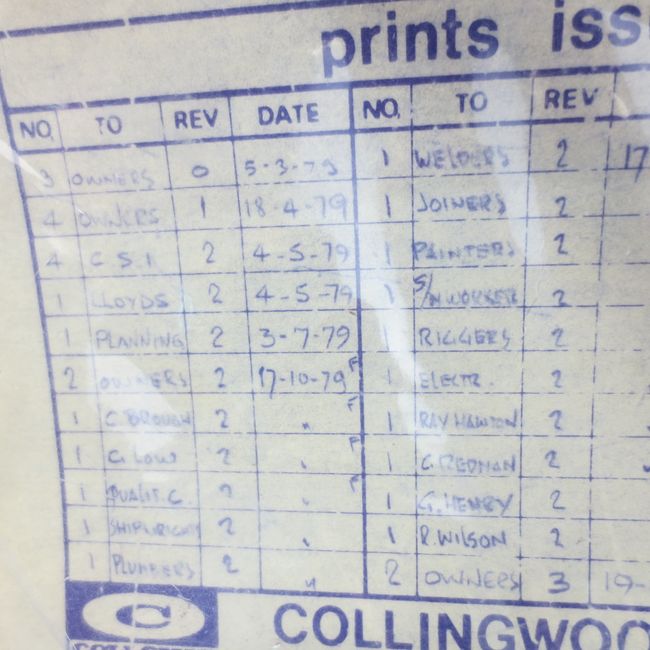 prints iss
NO. TO REV DATE NO. TO REV
3 OWNERS 0 5-3-79 1 WELDERS 2 17
4 OWNERS 1 18-4-79 1 JOINERS 2
4 C.S.I. 2 4-5-79 1 PAINTERS 2
1 LLOYDS 2 4-5-79 1 S/M WORKER 2
1 PLANNING 2 3-7-79 1 RIGGERS 2
2 OWNERS 2 17-10-79 F 1 ELECTR. 2
1 C. BROUGH 2 " F 1 RAY 2
1 G. LOW 2 " F 1 G. REDMAN 2
1 QUALIT. C. 2 " F 1 G. HENRY 2
1 SHIPWRIGHTS 2 " 1 R. WILSON 2
1 PLUMBERS 2 " 2 OWNERS 3 19-
C COLLINGWOO